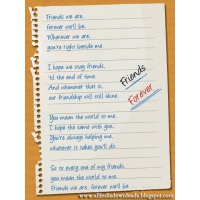 Friends we are,
forever we'll be.
Wherever we are,
you're right beside me.
I hope we stay friends,
'til the end of time.
And whenever that is,
our friendship will still shine.
Friends
Forever
You mean the world to me,
I hope the same with you.
You're always helping me,
whenever it takes you'll do.
So to every one of my friends,
you mean the world to me.
Friends we are, forever we'll be.